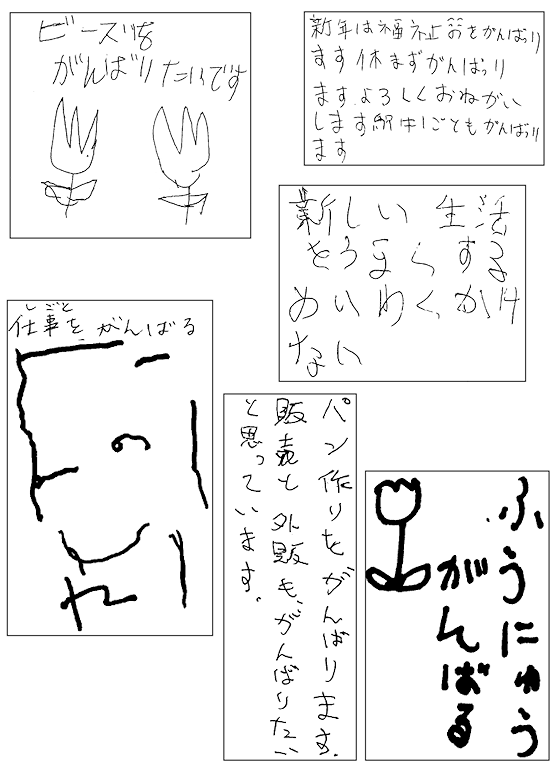 ビーズを
がんばりたいです
新年は福祉
をがんばり
ます休まずがんばり
ます。よろしくおねがい
します
ごともがんばり
ます
新しい 生活
をうまらする
めいわくかけ
ない
しごと
仕事をがんばる
パン作りをがんばります。
販売と外販も、がんばりたい
と思っています。
ふうにゅう
がんばる